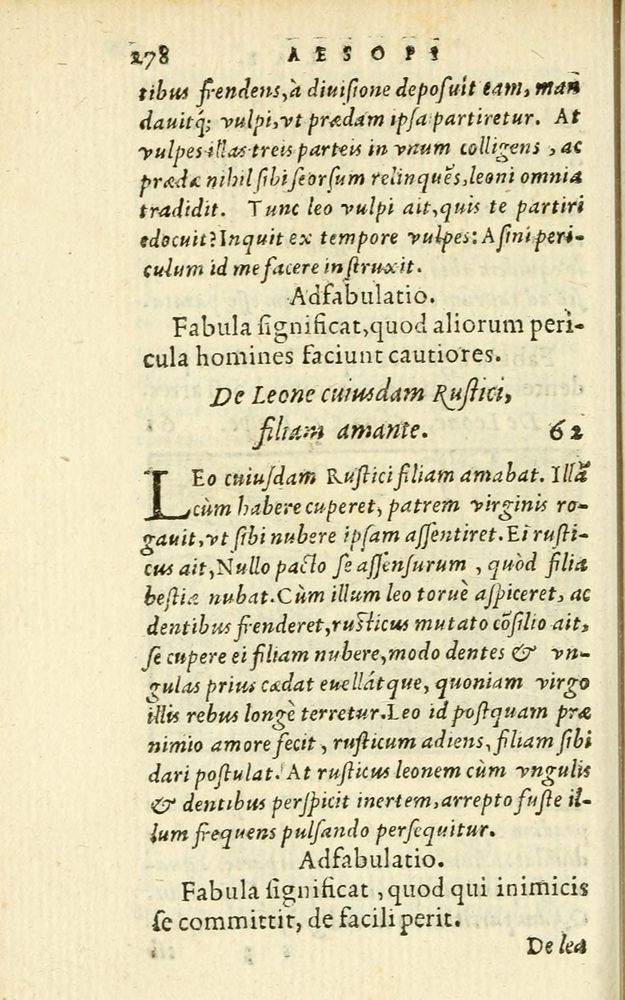 278 AESOPI
tibus frendens, à diuisione deposuit eam, man
dauitq́; vulpi, vt prædam ipsa partiretur. At
vulpes illas treis parteis in vnum colligens, ac
prædæ nihil sibi seorsum relinquēs, leoni omnia
tradidit. Tunc leo vulpi ait, quis te partiri
edocuit? Inquit ex tempore vulpes: Asini peri-
culum id me facere instruxit.
Adfabulatio.
Fabula significat, quod aliorum peri-
cula homines faciunt cautiores.
De Leone cuiusdam Rustici,
filiam amante. 62
LEo cuiusdam Rustici filiam amabat. Illā
cùm habere cuperet, patrem virginis ro-
gauit, vt sibi nubere ipsam assentiret. Ei rusti-
cus ait, Nullo pacto se assensurum, quòd filia
bestiæ nubat. Cùm illum leo toruè aspiceret, ac
dentibus frenderet, rusticus mutato cōsilio ait,
se cupere ei filiam nubere, modo dentes & vn-
gulas prius cædat euellátque, quoniam virgo
illis rebus longè terretur. Leo id postquam præ
nimio amore fecit, rusticum adiens, filiam sibi
dari postulat. At rusticus leonem cùm vngulis
& dentibus perspicit inertem, arrepto fuste il-
lum frequens pulsando persequitur.
Adfabulatio.
Fabula significat, quod qui inimicis
se committit, de facili perit.
De lea